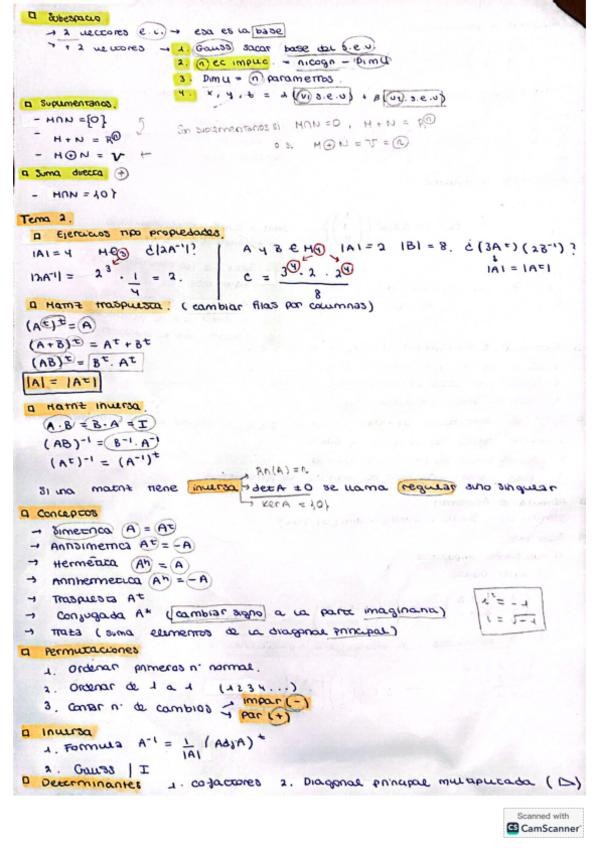 □ Subespacio
→ 2 vectores e.l. → esa es la base
→ + 2 vectores → 1. Gauss sacar base del s.e.v.
2. n ec implic. = nicogn - Dim U
3. Dim U = n parametros.
4. x, y, z = λ (v1 s.e.v) + β (v2 s.e.v)
□ Suplementarios.
- M∩N = {0}
- M + N = R^n
- M ⊕ N = V ←
Son suplementarios si M∩N = 0, M + N = R^n
o si M ⊕ N = V = n
□ Suma directa ⊕
- M∩N = {0}
Tema 2.
□ Ejercicios tipo propiedades.
|A| = 4 M∈3 ¿|2A⁻¹|?
|2A⁻¹| = 2³ · 1/4 = 2.
A y B ∈ M4 |A| = 2 |B| = 8. ¿(3Aᵗ)(2B⁻¹)?
|A| = |Aᵗ|
C = 3⁴ · 2 · 2⁴ / 8
□ Matriz traspuesta. (cambiar filas por columnas)
(Aᵗ)ᵗ = A
(A+B)ᵗ = Aᵗ + Bᵗ
(AB)ᵗ = Bᵗ · Aᵗ
|A| = |Aᵗ|
□ Matriz inversa.
A · B = B · A = I
(AB)⁻¹ = B⁻¹ · A⁻¹
(Aᵗ)⁻¹ = (A⁻¹)ᵗ
→ Rn(A) = n.
Si una matriz tiene inversa → det A ≠ 0 se llama regular sino singular
→ Ker A = {0}
□ Conceptos
→ Simetrica A = Aᵗ
→ Antisimetrica Aᵗ = -A
→ Hermética Aʰ = A
→ Antihermetica Aʰ = -A
→ Traspuesta Aᵗ
→ Conjugada A* (cambiar signo a la parte imaginaria)
→ Traza (suma elementos de la diagonal principal)
i² = -1
i = √-1
□ Permutaciones
1. Ordenar primeros nº normal.
2. Ordenar de 1 a 1 (1 2 3 4 ...)
3. Contar nº de cambios → impar (-)
→ par (+)
□ Inversa
1. Formula A⁻¹ = 1/|A| (Adj A)ᵗ
2. Gauss | I
□ Determinantes 1. cofactores 2. Diagonal principal multiplicada (◺)
Scanned with
CS CamScanner